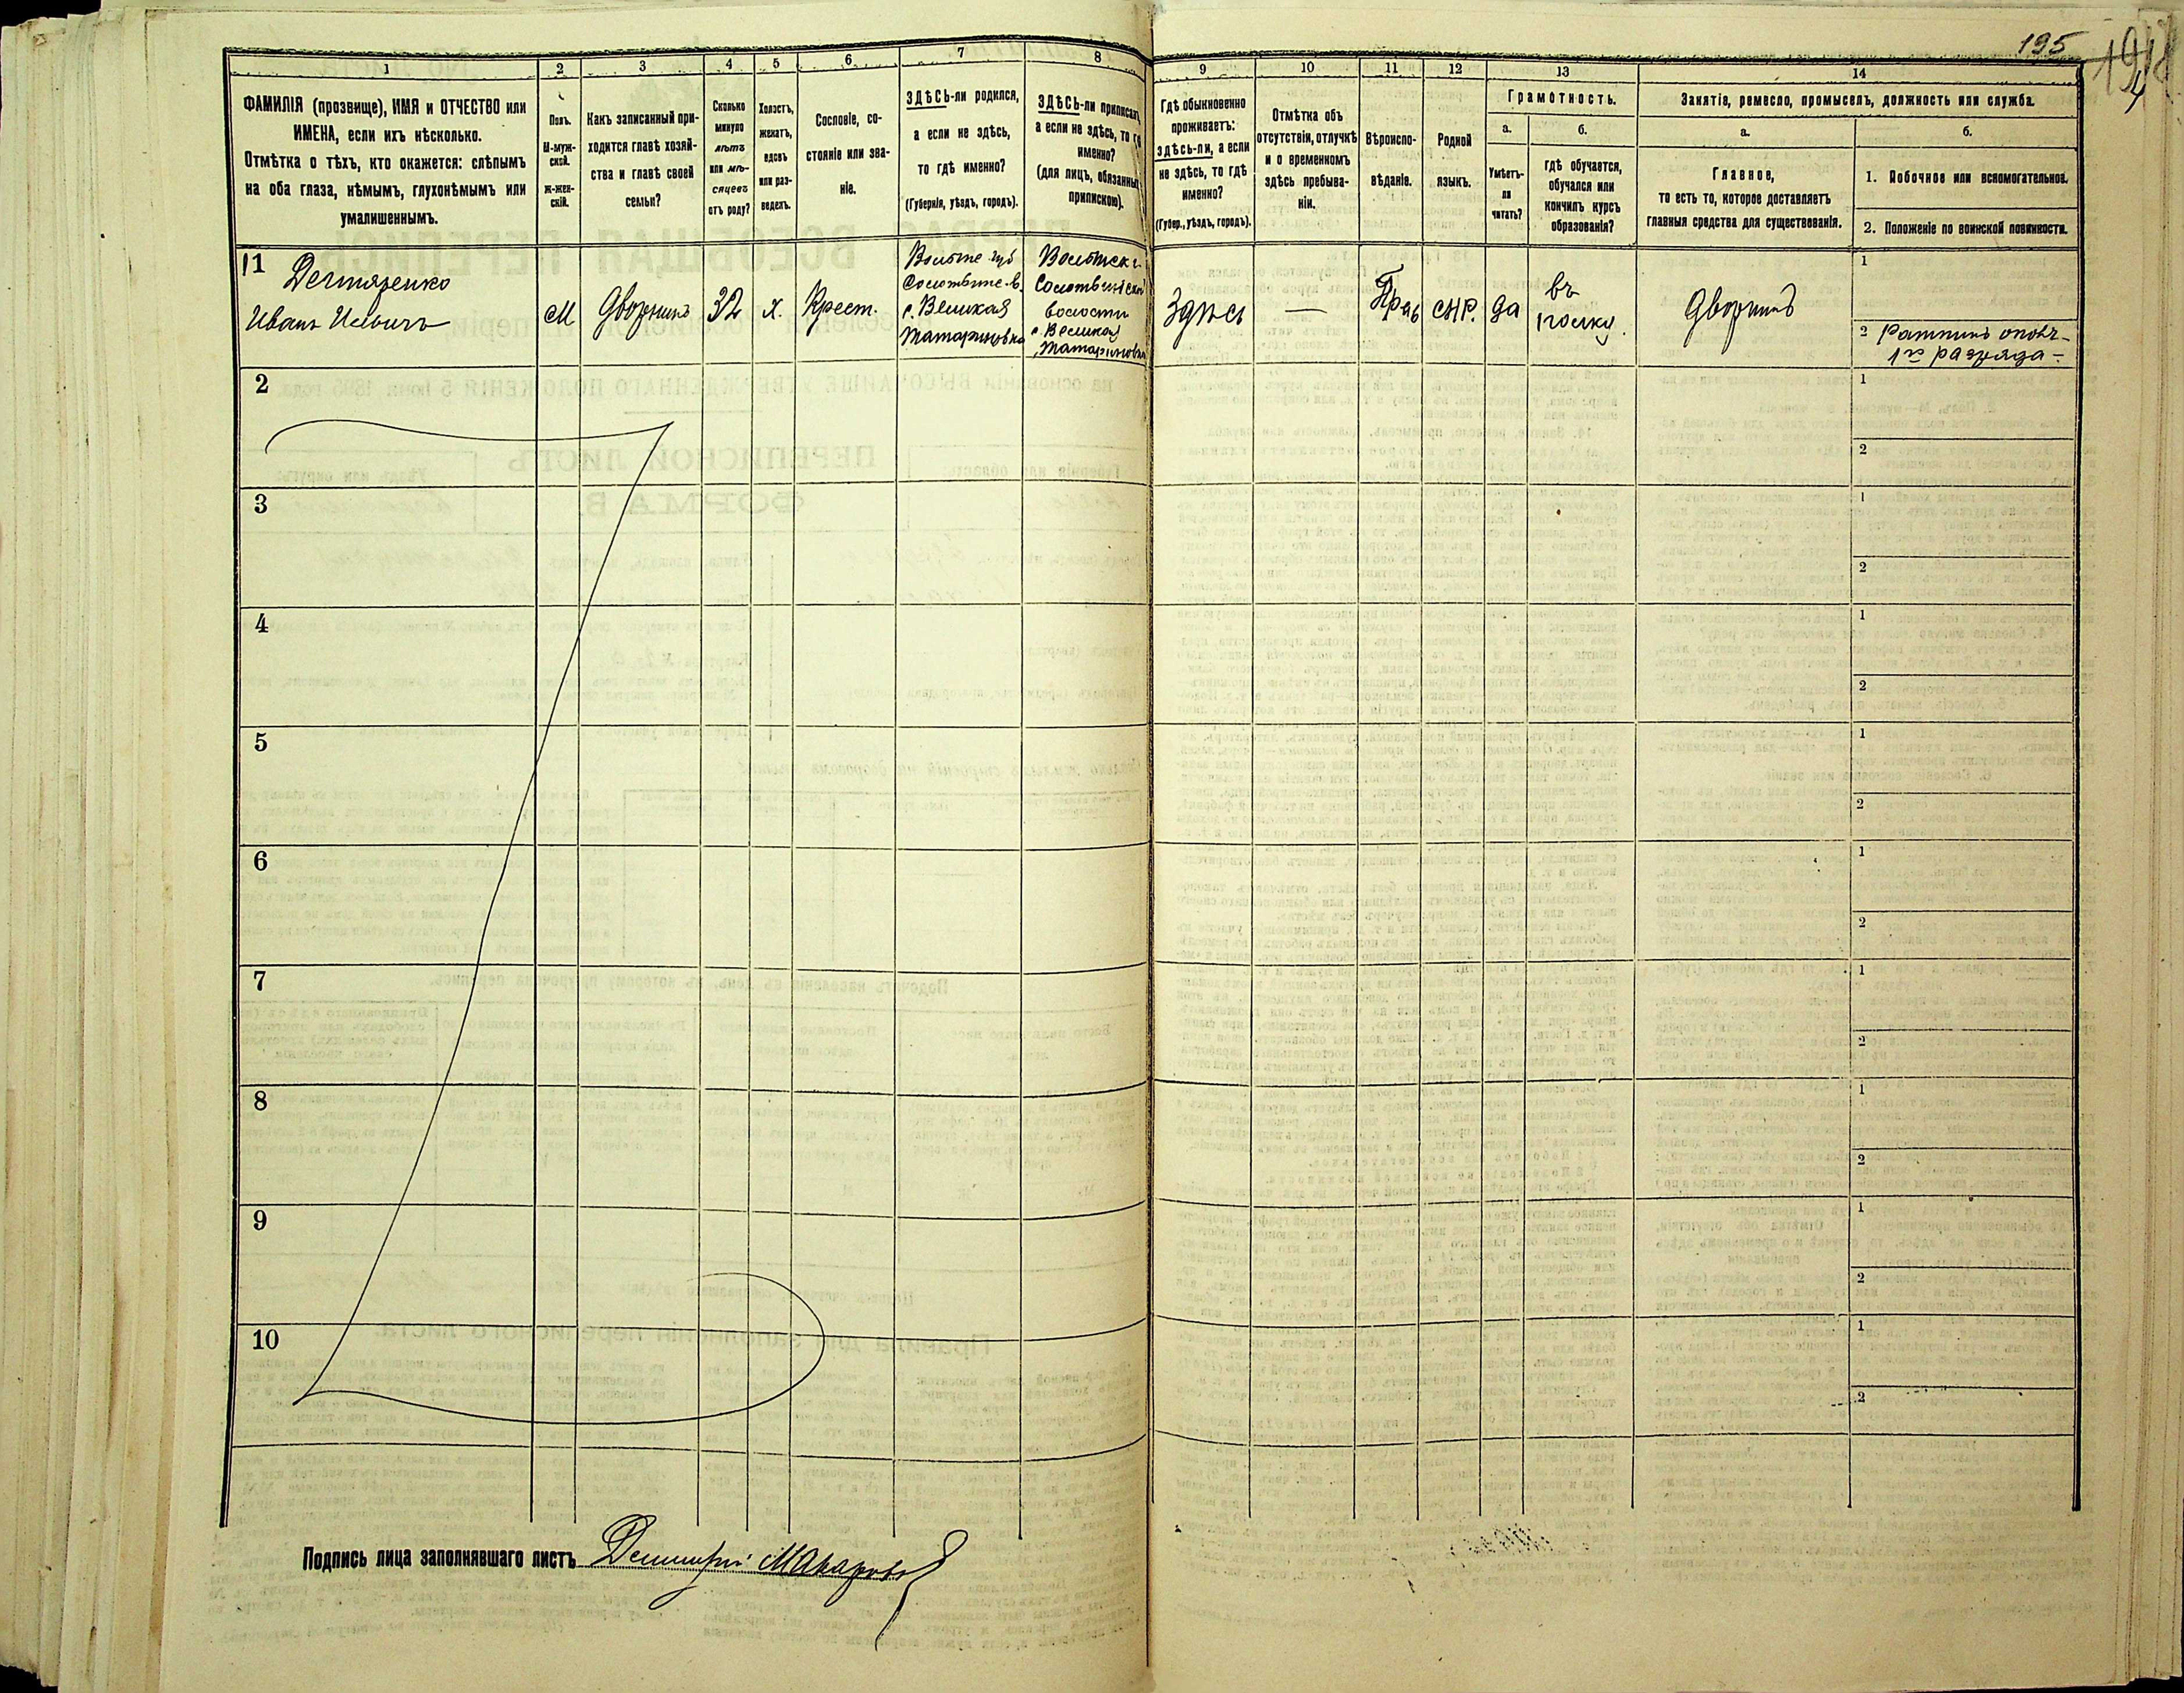 195
194
1
2
3
4
5
6
7
8
9
10
11
12
13
14
ФАМИЛІЯ (прозвище), ИМЯ и ОТЧЕСТВО или
ИМЕНА, если ихъ нѣсколько.
Отмѣтка о тѣхъ, кто окажется: слѣпымъ
на оба глаза, нѣмымъ, глухонѣмымъ или
умалишеннымъ.
Полъ.
М-муж-
ской.
ж-жен-
скій.
Какъ записанный при-
ходится главѣ хозяй-
ства и главѣ своей
семьи?
Сколько
минуло
лѣтъ
или мѣ-
сяцевъ
отъ роду?
Холостъ,
женатъ,
вдовъ
или раз-
веденъ.
Сословіе, со-
стояніе или зва-
ніе.
ЗДѢСЬ-ли родился,
а если не здѣсь,
то гдѣ именно?
(Губернія, уѣздъ, городъ).
ЗДѢСЬ-ли приписанъ,
а если не здѣсь, то гдѣ
именно?
(для лицъ, обязанныхъ
припискою).
Гдѣ обыкновенно
проживаетъ:
здѣсь-ли, а если
не здѣсь, то гдѣ
именно?
(Губер., уѣздъ, городъ).
Отмѣтка объ
отсутствіи, отлучкѣ
и о временномъ
здѣсь пребыва-
ніи.
Вѣроиспо-
вѣданіе.
Родной
языкъ.
Грамотность.
а.
б.
Умѣетъ-
ли
читать?
гдѣ обучается,
обучался или
кончилъ курсъ
образованія?
Занятіе, ремесло, промыселъ, должность или служба.
а.
б.
Главное,
то есть то, которое доставляетъ
главныя средства для существованія.
1. Побочное или вспомогательное.
2. Положеніе по воинской повинности.
1
Дегтяренко
Иванъ Ильичъ
М
Дворникъ
32
х.
Крест.
с. Великая
Татариновка
волости
с. Великая
Татариновка
Здѣсь
—
Прав
да
въ
Дворникъ
1
2 Ратникъ ополч-
1го разряда-
2
1
2
3
1
2
4
1
2
5
1
2
6
1
2
7
1
2
8
1
2
9
1
2
10
1
2
Подпись лица заполнявшаго листъ Дмитрій Макаровъ